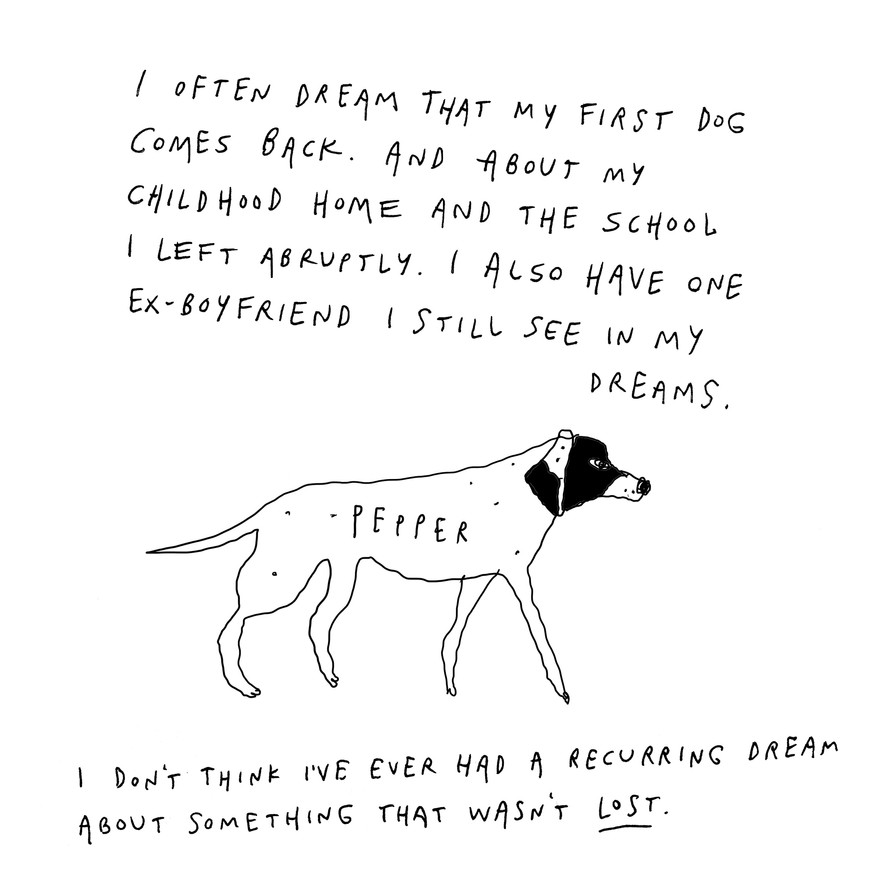 I OFTEN DREAM THAT MY FIRST DOG
COMES BACK. AND ABOUT MY
CHILDHOOD HOME AND THE SCHOOL
I LEFT ABRUPTLY. I ALSO HAVE ONE
EX-BOYFRIEND I STILL SEE IN MY
DREAMS.
PEPPER
I DON'T THINK I'VE EVER HAD A RECURRING DREAM
ABOUT SOMETHING THAT WASN'T LOST.